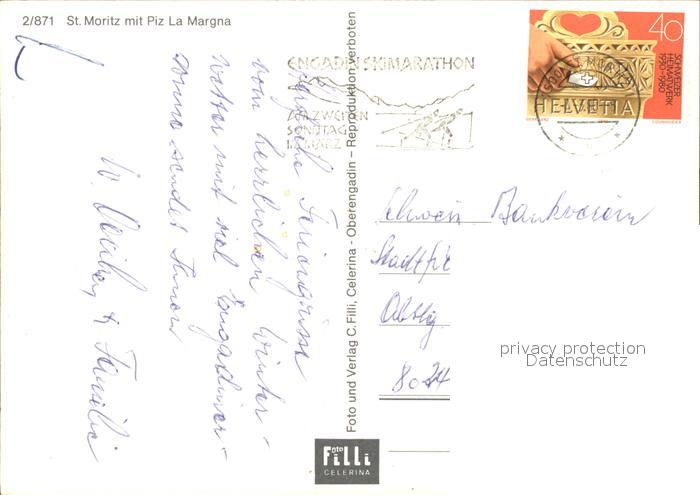 2/871 St. Moritz mit Piz La Margna
Herzliche Feriengrüsse
vom herrlichen Winter-
wetter mit viel Engadiner-
sonne sendet Ihnen
W. & Familie
Foto und Verlag C. Filli, Celerina - Oberengadin – Reproduktion verboten
Foto
Filli
CELERINA
ENGADIN SKIMARATHON
AM ZWEITEN
SONNTAG
IM MÄRZ
ST. MORITZ
40
SCHWEIZER
HEIMATWERK
1930-1980
HELVETIA
Schweiz. Bankverein
Abtlg.
8024
privacy protection
Datenschutz